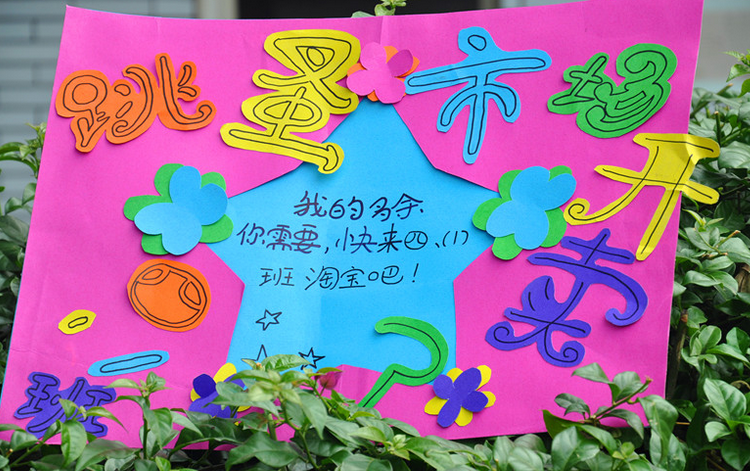 跳蚤市场
开卖了
我的多余
你需要,快来四、(1)
班淘宝吧!
四、一班